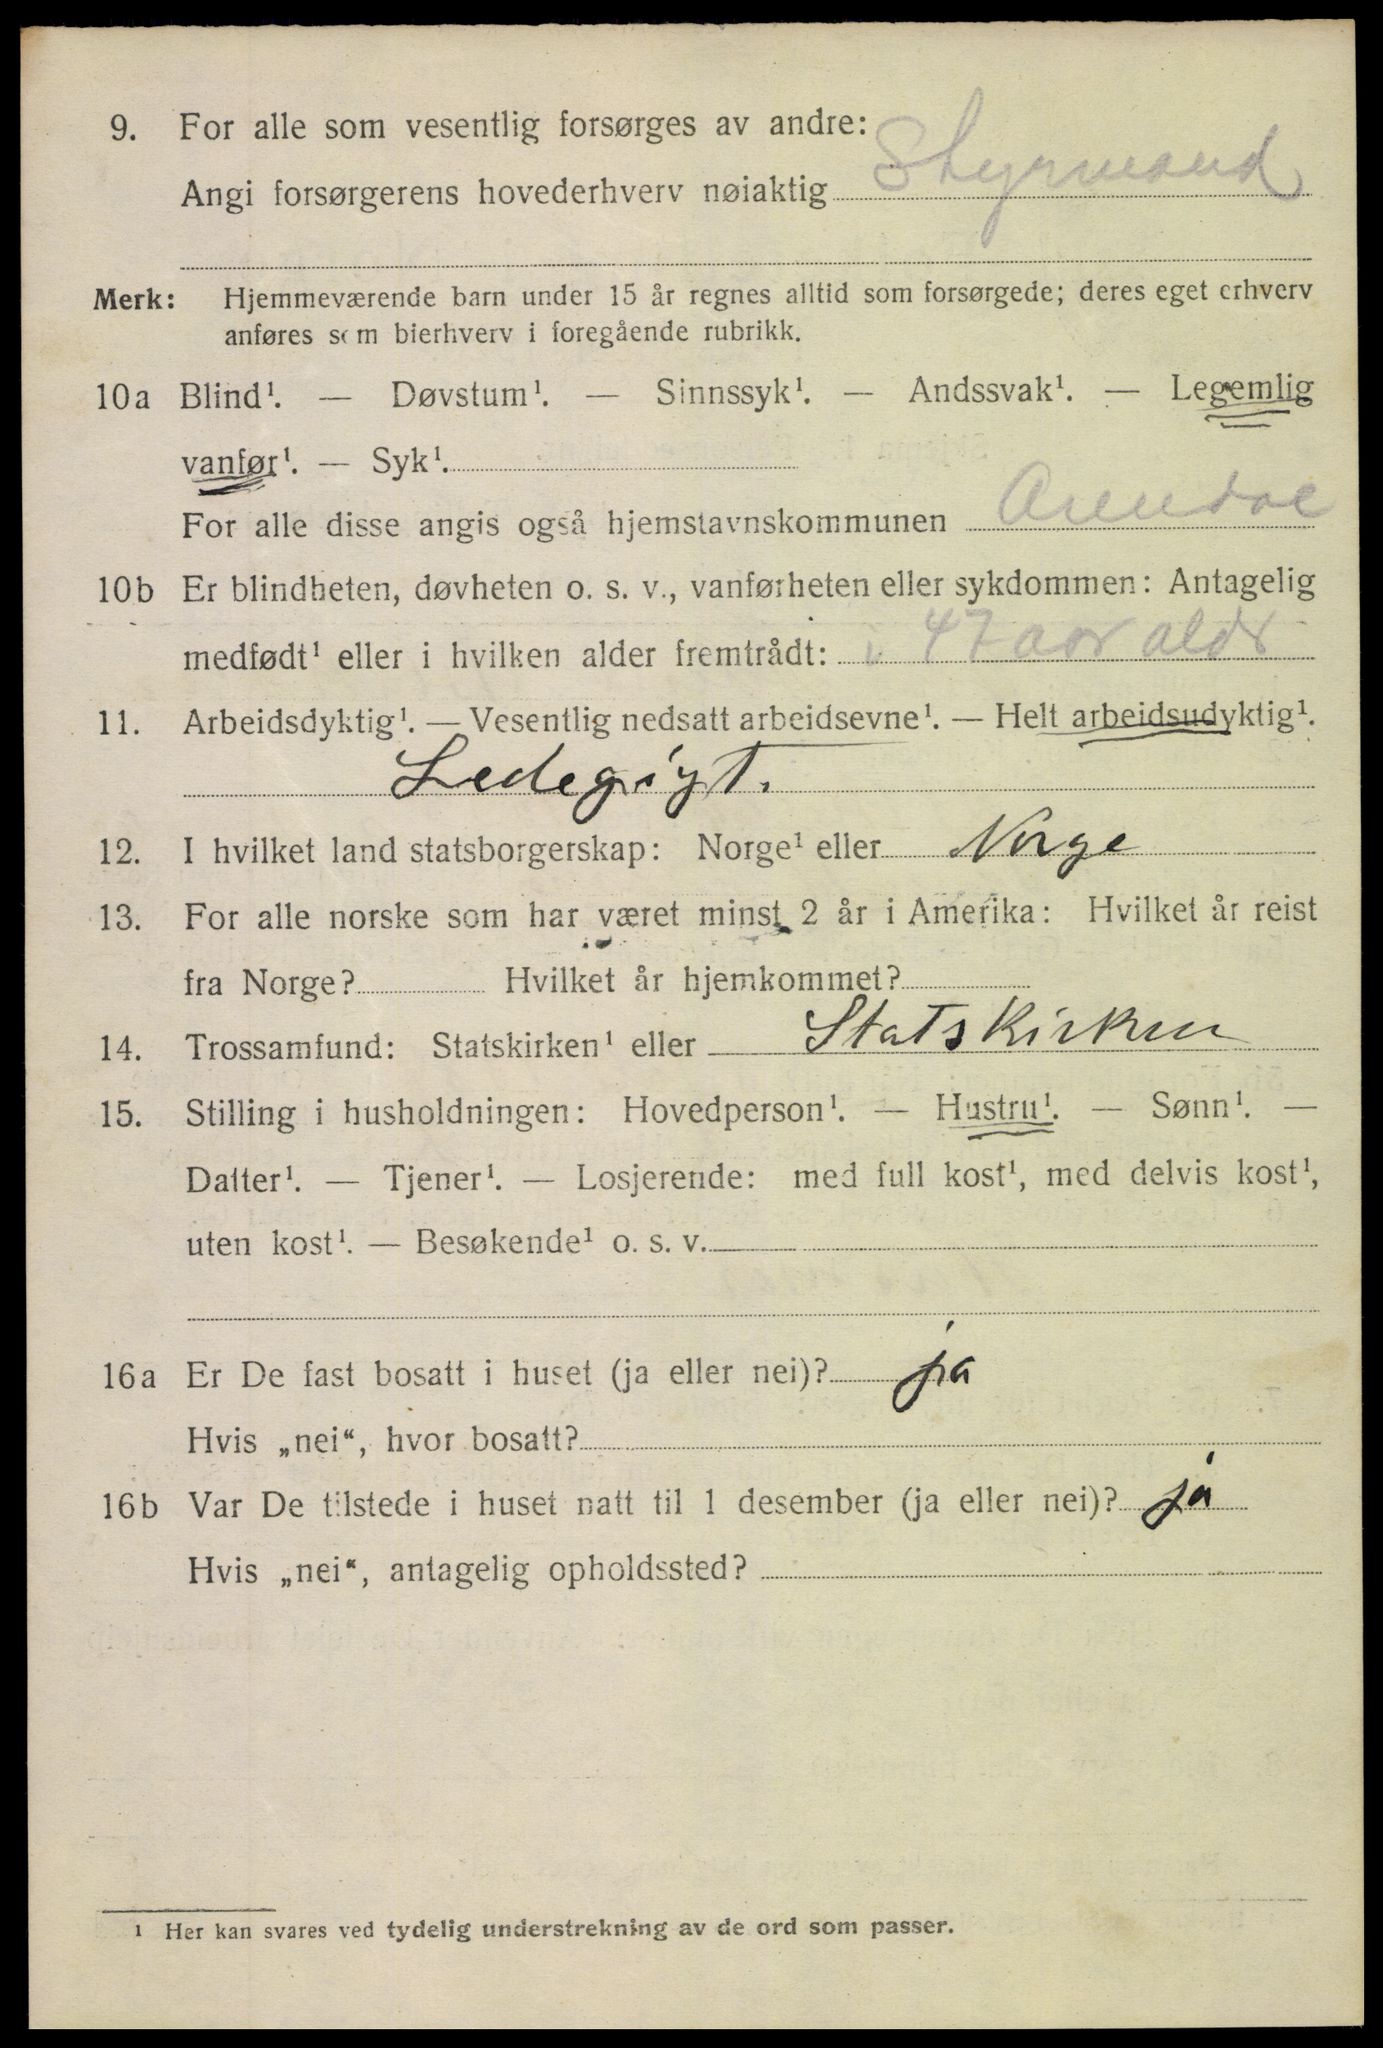 9. For alle som vesentlig forsørges av andre:
Angi forsørgerens hovederhverv nøiaktig Styrmand
Merk: Hjemmeværende barn under 15 år regnes alltid som forsørgede; deres eget erhverv
anføres som bierhverv i foregående rubrikk.
10a Blind¹. — Døvstum¹. — Sinnssyk¹. — Andssvak¹. — Legemlig
vanfør¹. — Syk¹.
For alle disse angis også hjemstavnskommunen Arendal
10b Er blindheten, døvheten o. s. v., vanførheten eller sykdommen: Antagelig
medfødt¹ eller i hvilken alder fremtrådt: i 47 aar aldr
11. Arbeidsdyktig¹. — Vesentlig nedsatt arbeidsevne¹. — Helt arbeidsudyktig¹.
Ledegigt.
12. I hvilket land statsborgerskap: Norge¹ eller Norge
13. For alle norske som har været minst 2 år i Amerika: Hvilket år reist
fra Norge? Hvilket år hjemkommet?
14. Trossamfund: Statskirken¹ eller Statskirken
15. Stilling i husholdningen: Hovedperson¹. — Hustru¹. — Sønn¹. —
Datter¹. — Tjener¹. — Losjerende: med full kost¹, med delvis kost¹,
uten kost¹. — Besøkende¹ o. s. v.
16a Er De fast bosatt i huset (ja eller nei)? ja
Hvis „nei“, hvor bosatt?
16b Var De tilstede i huset natt til 1 desember (ja eller nei)? ja
Hvis „nei“, antagelig opholdssted?
¹ Her kan svares ved tydelig understrekning av de ord som passer.